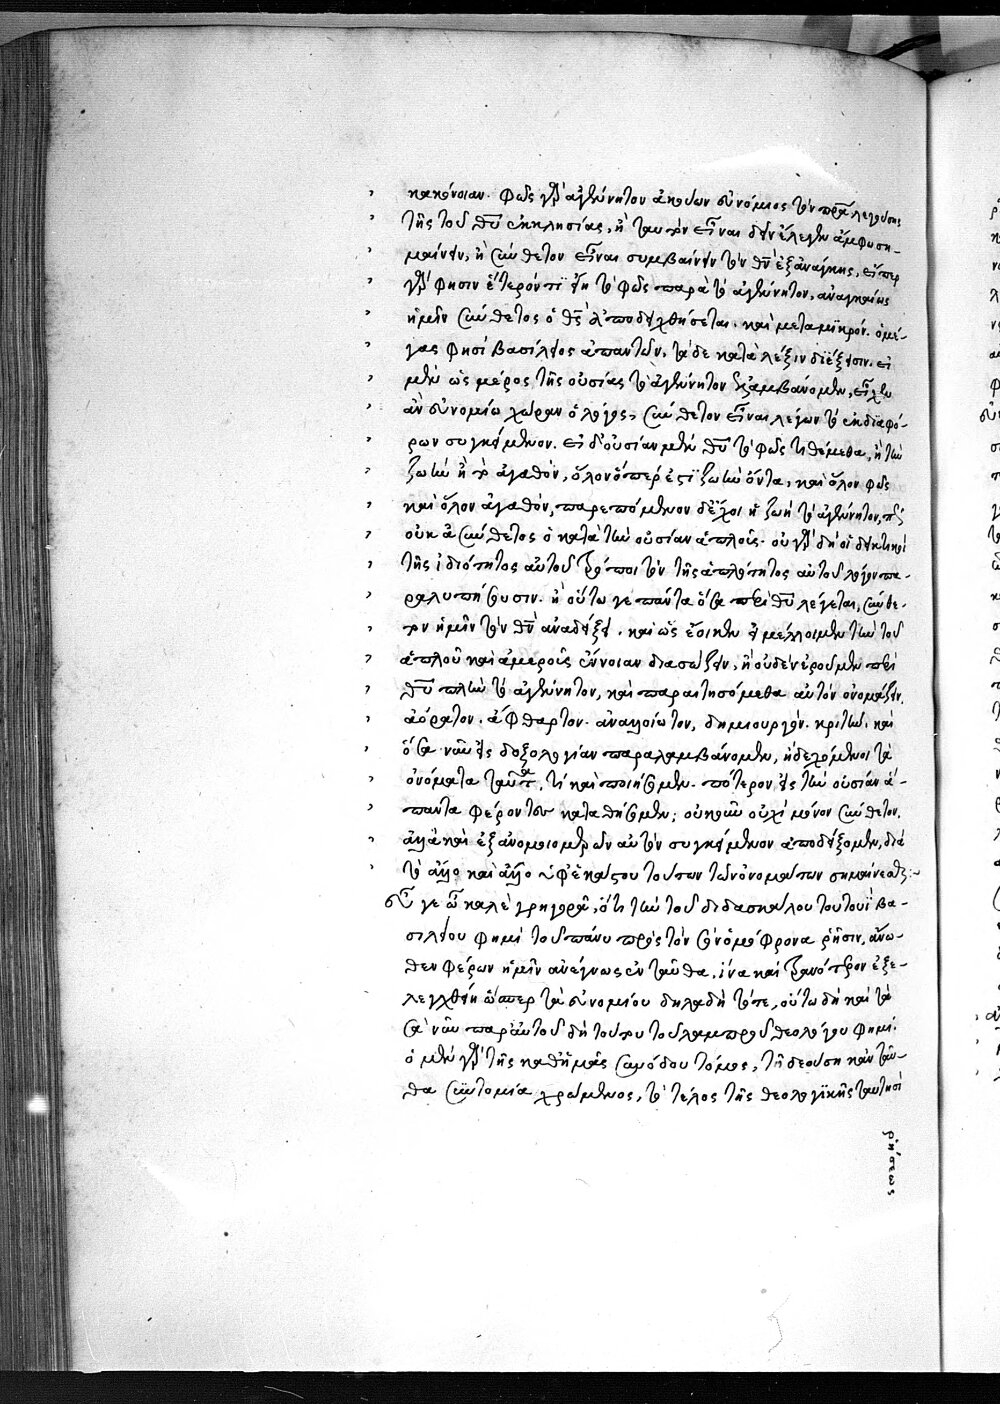 κακόνοιαν. φῶς γὰρ ἀγέννητον ἀκούων εὐνόμιος τὸν πρα λεγούσης
τῆς τοῦ θῦ ἐκκλησίας, ἢ ταυτὸν εἶναι δεῖν ἔλεγεν ἄμφω ση-
μαίνειν, ἢ σύνθετον εἶναι συμβαίνειν τὸν θν ἐξανάγκης, εἴπερ
γάρ φησιν ἕτερόν τι εἴη τὸ φῶς παρὰ τὸ ἀγέννητον, ἀναγκαίως
ἡμῖν σύνθετος ὁ θς ἀποδειχθήσεται. καὶ μετα μικρόν. ὁ μέ-
γας φησὶ βασίλειος ἀπαντῶν, τάδε κατὰ λέξιν διέξεισιν. εἰ
μὲν ὡς μέρος τῆς οὐσίας τὸ ἀγέννητον ἐξελαμβάνομεν, εἶχεν
ἂν εὐνομίω χώραν ὁ λόγος, σύνθετον εἶναι λέγων τὸ ἐκ διαφό-
ρων συγκείμενον. εἰ δ' οὐσίαν μὲν θῦ τὸ φῶς τιθέμεθα, ἢ τὴν
ζωὴν ἢ τὸ ἀγαθόν, ὅλον ὅπερ ἐστὶ ζωὴν ὄντα, καὶ ὅλον φῶς
καὶ ὅλον ἀγαθόν, παρεπόμενον δὲ ἔχοι ἡ ζωὴ τὸ ἀγέννητον, πῶς
οὐκ ἀσύνθετος ὁ κατὰ τὴν οὐσίαν ἁπλοῦς. οὐ γὰρ δὴ οἱ δεικτικοὶ
τῆς ἰδιότητος αὐτοῦ τρόποι τὸν τῆς ἁπλότητος αὐτοῦ λόγον πα-
ραλυπήσουσιν. ἢ οὕτω γε πάντα ὅσα περὶ θῦ λέγεται, σύνθε-
τον ἡμῖν τὸν θν ἀναδείξει. καὶ ὡς ἔοικεν εἰ μέλλοιμεν τὴν τοῦ
ἁπλοῦ καὶ ἀμεροῦς ἔννοιαν διασώζειν, ἢ οὐδὲν ἐροῦμεν περὶ
θῦ πλὴν τὸ ἀγέννητον, καὶ παραιτησόμεθα αὐτὸν ὀνομάζειν,
ἀόρατον. ἄφθαρτον. ἀναλλοίωτον, δημιουργόν. κριτὴν, καὶ
ὅσα νῦν εἰς δοξολογίαν παραλαμβάνομεν, ἢ δεχόμενοι τὰ
ὀνόματα ταῦτα, τί καὶ ποιήσομεν. πότερον εἰς τὴν οὐσίαν ἅ-
παντα φέροντες καταθήσομεν; οὐκοῦν οὐχὶ μόνον σύνθετον,
ἀλλὰ καὶ ἐξ ἀνομοιομερῶν αὐτὸν συγκείμενον ἀποδείξομεν, διὰ
τὸ ἄλλο καὶ ἄλλο ὑφ' ἑκάστου τούτων τῶν ὀνομάτων σημαίνεσθαι.
σὺ γε ὦ καλὲ γρηγορᾶ, ὅτι τὴν τοῦ διδασκάλου τουτουῒ βα-
σιλείου φημὶ τοῦ πάνυ πρὸς τὸν σὸν ὁμόφρονα ῥῆσιν, ἄνω-
θεν φέρων ἡμῖν ἀνέγνως ἐνταῦθα, ἵνα καὶ τρανότερον ἐξε-
λεγχθείη ὥσπερ τὰ εὐνομίου δηλαδὴ τότε, οὕτω δὴ καὶ τὰ
σὰ νῦν παρ' αὐτοῦ δὴ τούτου τοῦ λαμπροῦ θεολόγου φημί.
ὁ μὲν γὰρ τῆς καθ' ἡμᾶς συνόδου τόμος, τῆ δεούση κἀνταῦ-
θα συντομία χρώμενος, τὸ τέλος τῆς θεολογικῆς ταυτησὶ
ῥήσεως